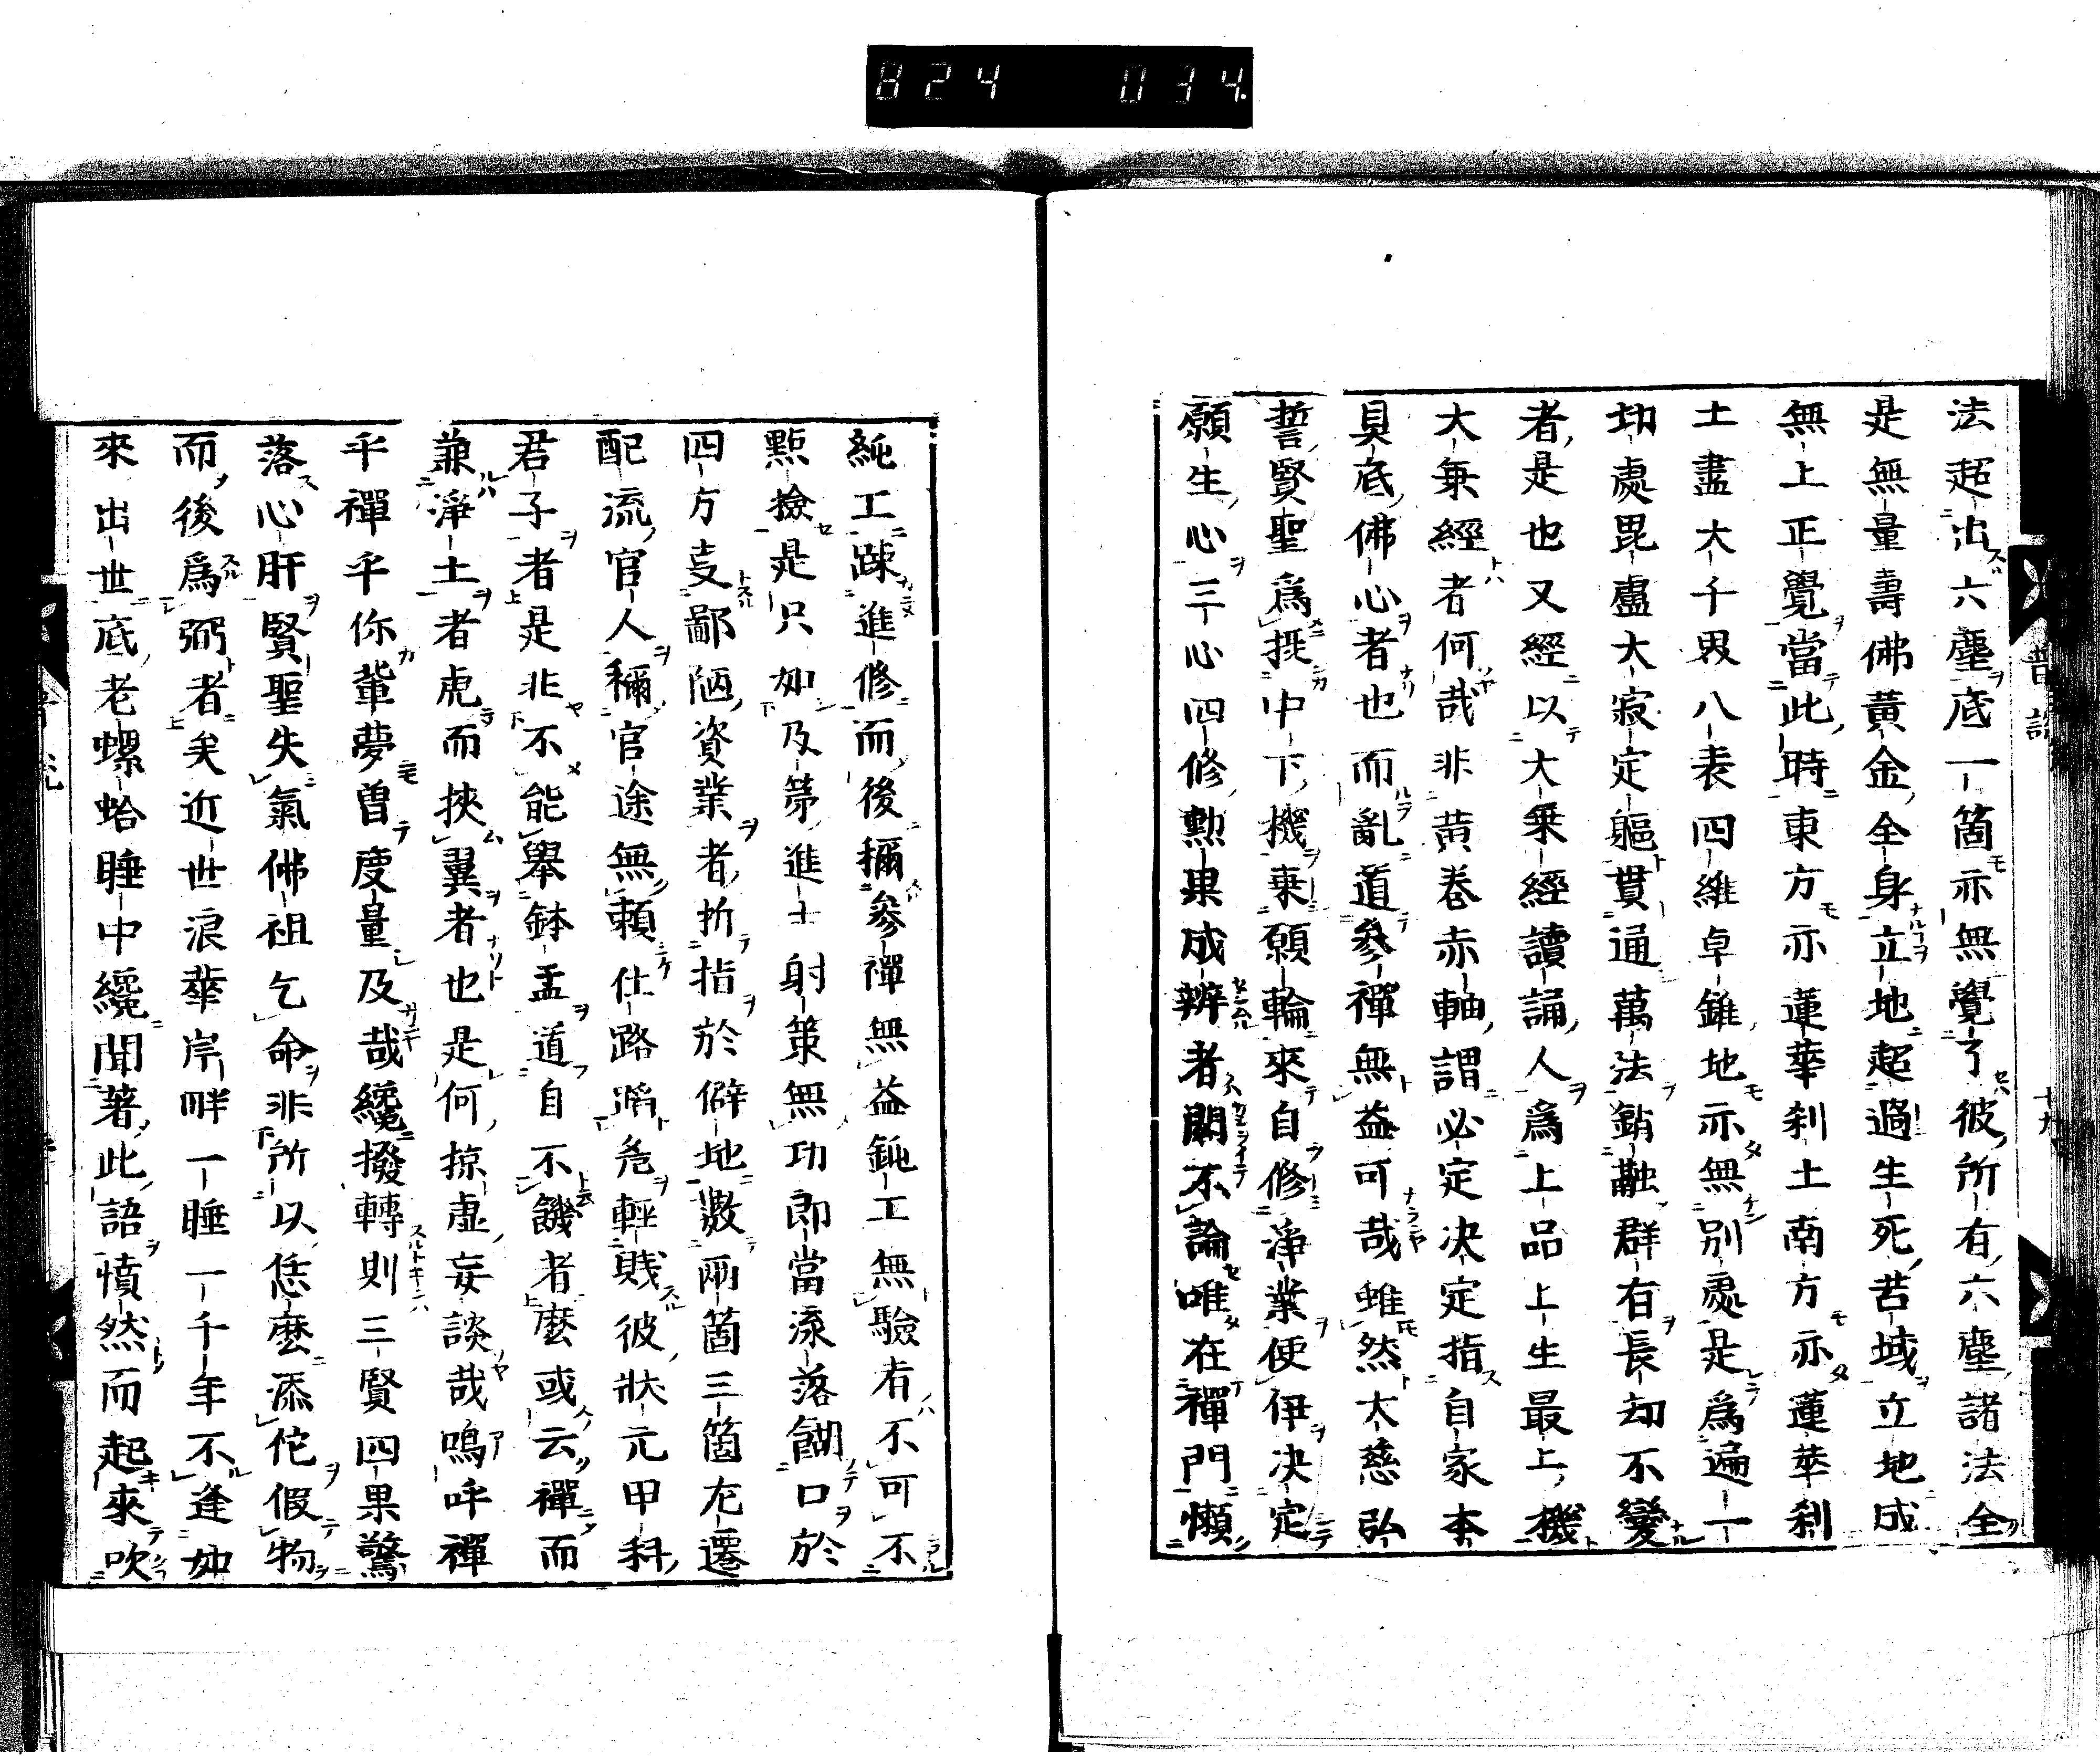 824 034
法超出六塵底一箇亦無覺了彼所有六塵諸法全
是無量壽佛黃金全身立地超過生死苦域立地成
無上正覺當此時東方亦蓮華刹土南方亦蓮華刹
土盡大千界八表四維卓錐地亦無別處是爲遍一
切處毘盧大寂定軀貫通萬法銷融群有長劫不變
者是也又經以大乗經讀誦人爲上品上生最上機
大乗經者何哉非黄巻赤軸謂必定決定指自家本
具底佛心者也而亂道參禪無益可哉雖然大慈弘
誓賢聖爲摂中下機乗願輪來自修淨業便伊決定
願生心三心四修勲果成辨者閣不論唯在禪門懶
純工踈進修而後稱參禪無益鈍工無驗者不可不
㸃撿是只如及第進士射策無功即當流落餬口於
四方支鄙陋資業者折指於僻地数兩箇三箇左遷
配流官人稱官途無頼仕路滔危輕賎彼狀元甲科
君子者是非不能舉鉢盂道自不饑者麽或云禪而
兼淨土者虎而挾翼者也是何掠虚妄談哉嗚呼禪
乎禪乎你輩夢曽度量及哉纔撥轉則三賢四果驚
落心肝賢聖失氣佛祖乞命非所以恁麽添佗假物
而後爲弼者矣近世浪華岸畔一睡一千年不逢如
來出世底老螺蛤睡中纔聞著此語憤然而起來吹